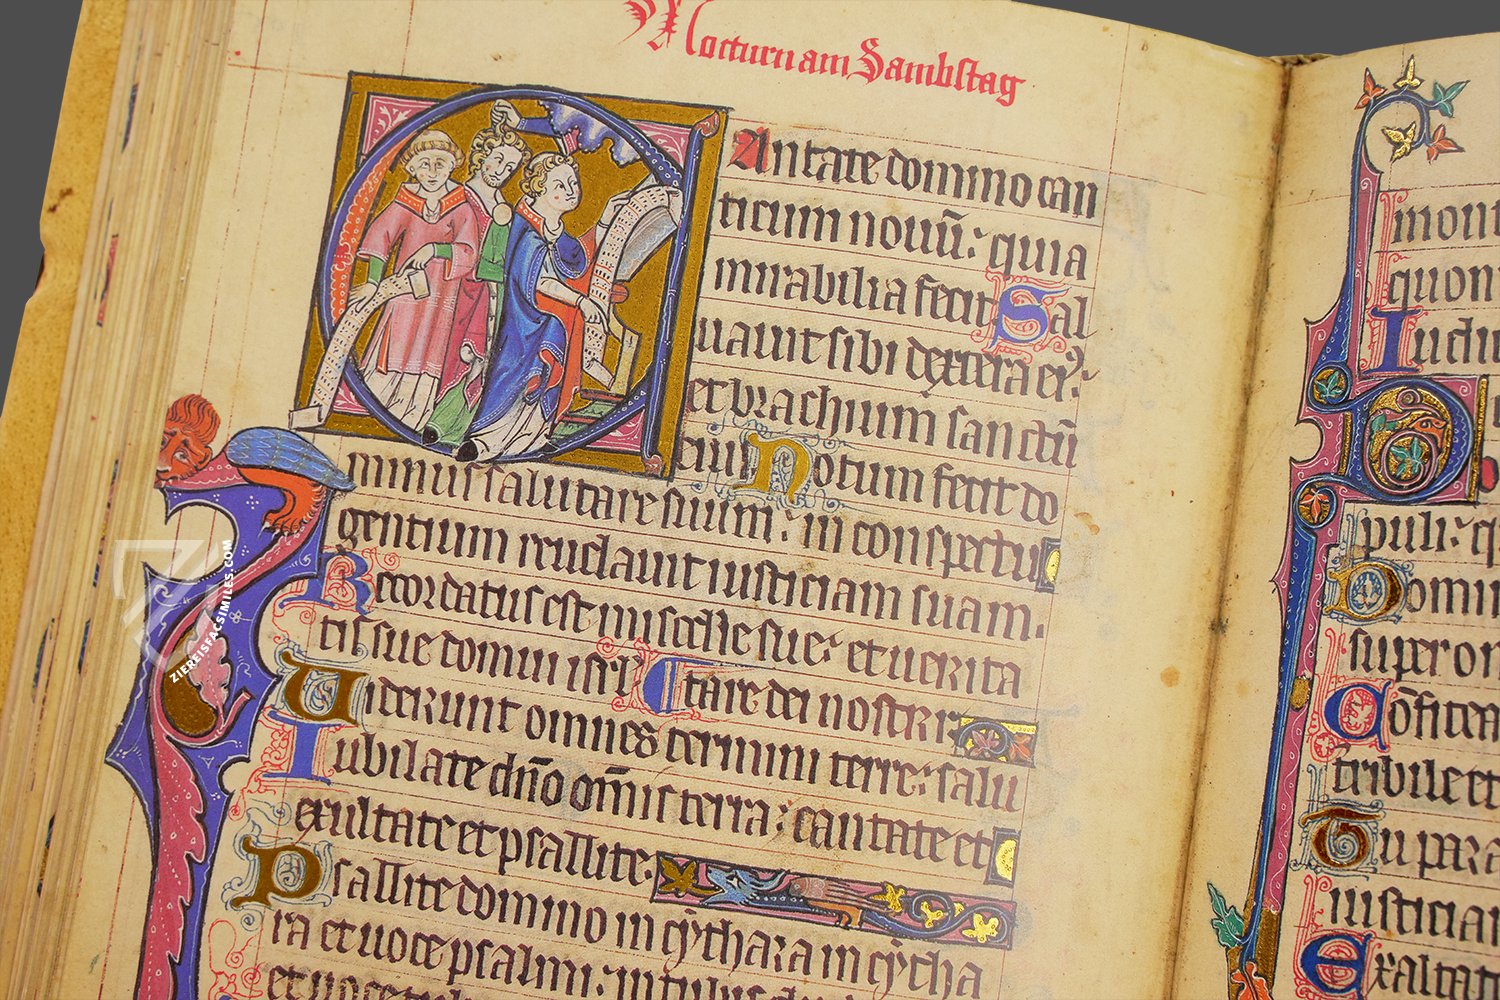 Nocturn am Sambstag
Antate domino can
ticum nouū: quia
mirabilia fecit Sal
uauit sibi dextera eiꝰ:
et brachium sanctū
eius Notum fecit do
minus salutare suum: in conspectu
gentium reuelauit iusticiam suam.
Recordatus est miscďie sue: et uerita
tis sue domui isrł
Uiderunt omnes termini terre: salu
tare dei nostri
Iubilate dn̄o om̄is terra: cantate et
exultate et psallite.
Psallite domino in cythara in cytha
ra et uoce psalmi: in tubis duc
mont
quon
Iudi
puli: q
Domin
super om
Cōfitea
tribile et
Tu para
iusticiam
Exaltat
ZIEREISFACSIMILES.COM